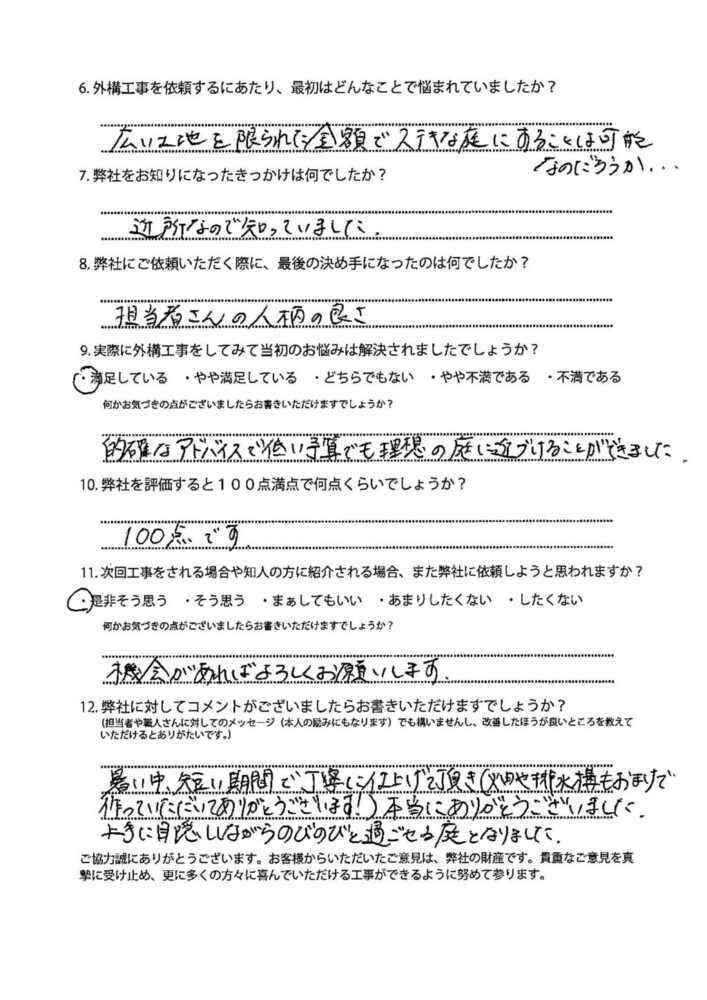 6. 外構工事を依頼するにあたり、最初はどんなことで悩まれていましたか？
広い土地を限られた金額でステキな庭にすることは可能
なのだろうか...
7. 弊社をお知りになったきっかけは何でしたか？
近所なので知っていました.
8. 弊社にご依頼いただく際に、最後の決め手になったのは何でしたか？
担当者さんの人柄の良さ
9. 実際に外構工事をしてみて当初のお悩みは解決されましたでしょうか？
・満足している ・やや満足している ・どちらでもない ・やや不満である ・不満である
何かお気づきの点がございましたらお書きいただけますでしょうか？
的確なアドバイスで低い予算でも理想の庭に近づけることができました.
10. 弊社を評価すると１００点満点で何点くらいでしょうか？
100点です.
11. 次回工事をされる場合や知人の方に紹介される場合、また弊社に依頼しようと思われますか？
・是非そう思う ・そう思う ・まぁしてもいい ・あまりしたくない ・したくない
何かお気づきの点がございましたらお書きいただけますでしょうか？
機会があればよろしくお願いします.
12. 弊社に対してコメントがございましたらお書きいただけますでしょうか？
（担当者や職人さんに対してのメッセージ（本人の励みにもなります）でも構いませんし、改善したほうが良いところを教えて
いただけるとありがたいです。）
暑い中、短い期間で丁寧に仕上げて頂き(畑や排水構もおまけで
作っていただいてありがとうございます!)本当にありがとうございました.
上手に目隠ししながらのびのびと過ごせる庭となりました.
ご協力誠にありがとうございます。お客様からいただいたご意見は、弊社の財産です。貴重なご意見を真
摯に受け止め、更に多くの方々に喜んでいただける工事ができるように努めて参ります。